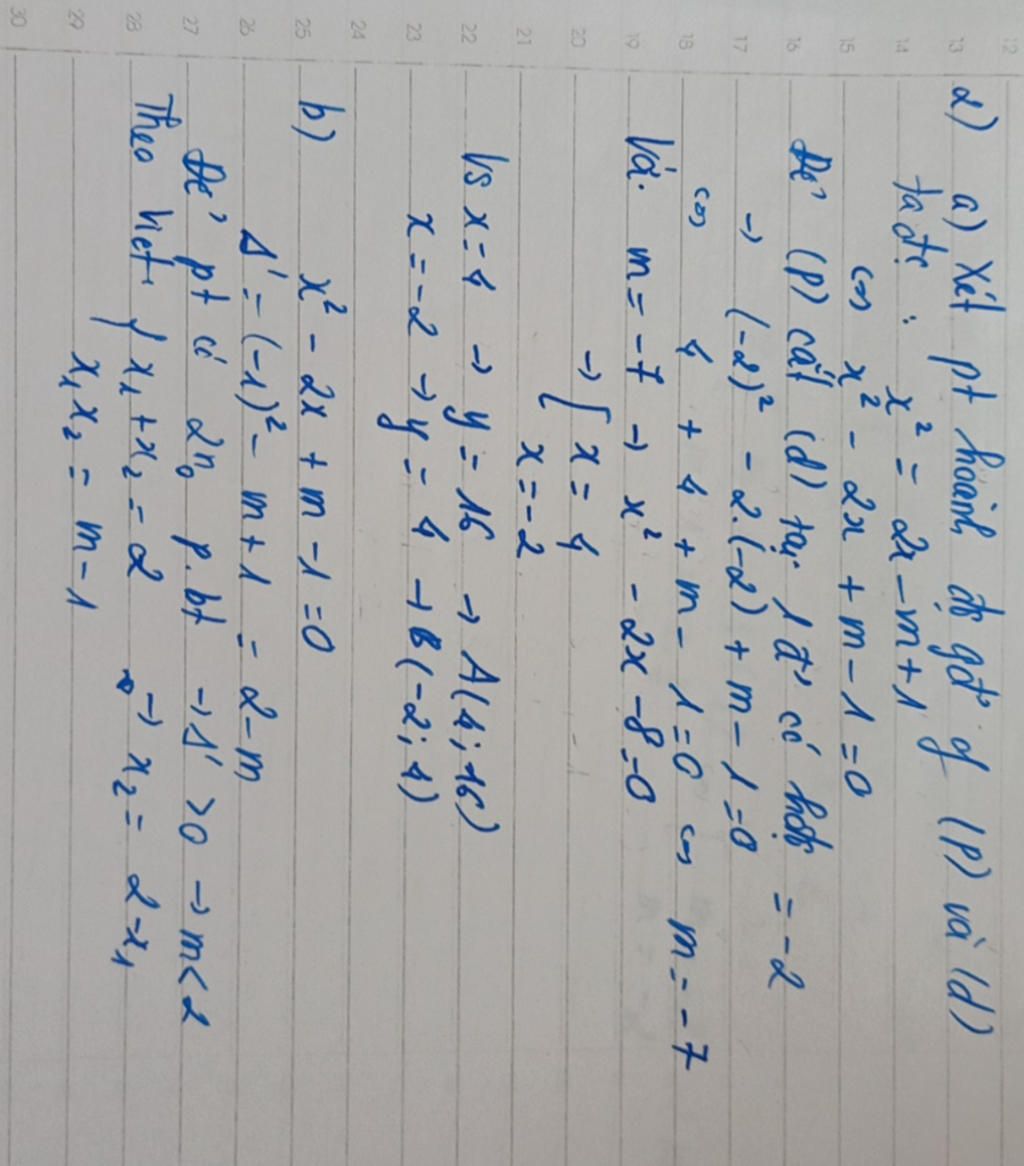 12 13 14 15 16 17 18 19 20 21 22 23 24 25 26 27 28 29 30
2) a) Xét pt hoành độ gđ of (P) và (d)
ta đc: x² = 2x - m + 1
<=> x² - 2x + m - 1 = 0
Để (P) cắt (d) tại 1 đ' có hđộ = -2
→ (-2)² - 2.(-2) + m - 1 = 0
<=> 4 + 4 + m - 1 = 0 <=> m = -7
Với m = -7 → x² - 2x - 8 = 0
→ [ x = 4
x = -2
Vs x = 4 → y = 16 → A(4; 16)
x = -2 → y = 4 → B(-2; 4)
b) x² - 2x + m - 1 = 0
Δ' = (-1)² - m + 1 = 2 - m
Để pt có 2no p.bt → Δ' > 0 → m < 2
Theo Viet: { x₁ + x₂ = 2 → x₂ = 2 - x₁
x₁x₂ = m - 1